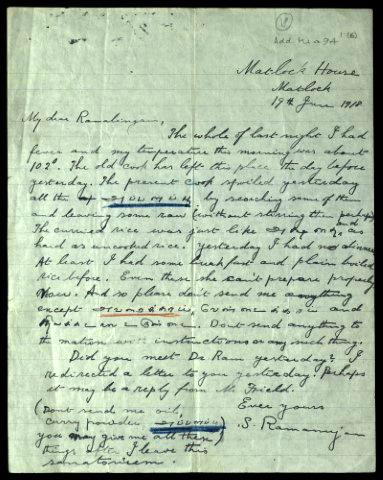 Add. Ms. a 94
1 (6)
Matlock House
Matlock
19th June 1918
My dear Ramalingam,
The whole of last night I had
fever and my temperature this morning was about
102°. The old cook has left this place the day before
yesterday. The present cook spoiled yesterday
all the by scorching some of them
and leaving some raw (without stirring them perhaps)
The curried rice was just like and
hard as uncooked rice. Yesterday I had no dinner
At least I had some breakfast and plain boiled
rice before. Even these she can't prepare properly
now. And so please don't send me anything
except and
Don't send anything to
the matron with instructions or any such thing.
Did you meet Dr Ram yesterday? I
redirected a letter to you yesterday. Perhaps
it may be a reply from Mr Field.
Ever yours
S. Ramanujan
(Don't send me oil,
curry powder,
you may give me all these)
things after I leave this
sanatorium.